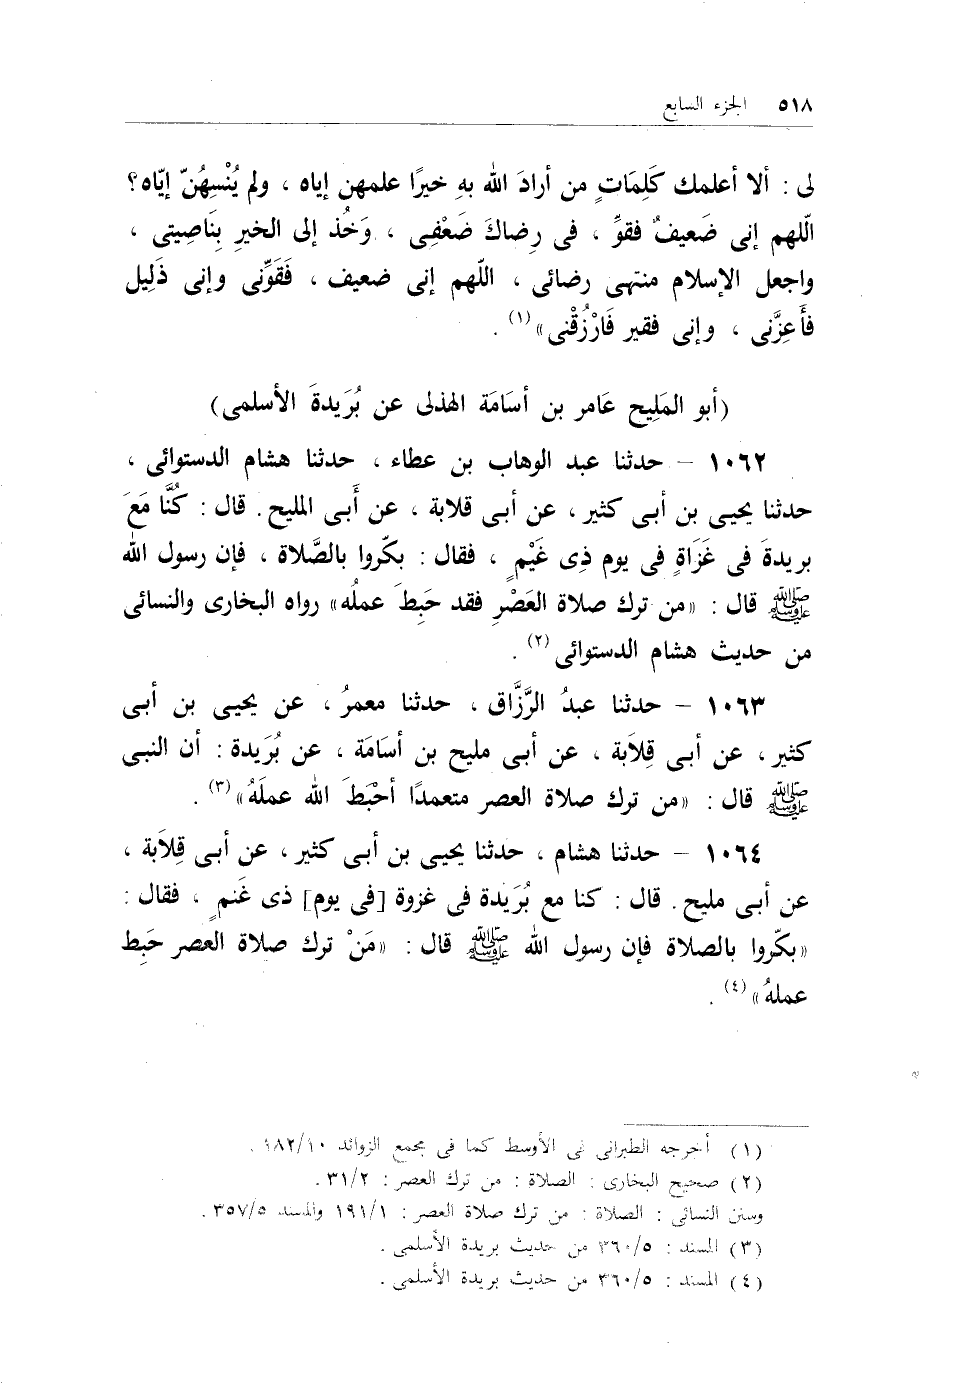 ٥١٨ الجزء السابع
لى : ألا أعلمك كَلِمَاتٍ من أرادَ الله بهِ خيرًا علمهن إياه ، ولم يُنْسِهُنّ إيّاه؟
الّلهم إنى ضَعيفٌ فقوِّ ، فى رِضاكَ ضَعْفِى ، وَخُذ إلى الخيرِ بِنَاصِيتى ،
واجعل الإسلام منتهى رضائى ، اللّهم إنى ضعيف ، فَقَوِّنى وإنى ذَلِيل
فأَعِزَّنى ، وإنى فقير فَارْزُقْنى» (١) .
(أبو المَلِيح عَامر بن أسَامَة الهذلى عن بُرَيدةَ الأسلمى)
١٠٦٢ - حدثنا عبد الوهاب بن عطاء ، حدثنا هشام الدستوائى ،
حدثنا يحيى بن أبى كثير ، عن أبى قلابة ، عن أَبى المليح . قال : كُنَّا مَعَ
بريدةَ فى غَزَاةٍ فى يوم ذِى غَيْمٍ ، فقال : بكّروا بالصَّلاة ، فإن رسول الله
ﷺ قال : «من ترك صلاة العَصْرِ فقد حَبِطَ عملُه» رواه البخارى والنسائى
من حديث هشام الدستوائى (٢) .
١٠٦٣ - حدثنا عبدُ الرَّزَّاق ، حدثنا معمرُ ، عن يحيى بن أبى
كثير ، عن أبى قِلاَبة ، عن أبى مليح بن أسَامَة ، عن بُرَيدة : أن النبى
ﷺ قال : «من ترك صلاة العصر متعمدًا أحْبَطَ الله عملَهُ» (٣) .
١٠٦٤ - حدثنا هشام ، حدثنا يحيى بن أبى كثير ، عن أبى قِلاَبة ،
عن أبى مليح . قال : كنا مع بُرَيدة فى غزوة [فى يوم] ذى غَنمٍ ، فقال :
«بكّروا بالصلاة فإن رسول الله ﷺ قال : «مَنْ ترك صلاة العصر حَبِط
عملهُ» (٤) .
(١) أخرجه الطبرانى فى الأوسط كما فى مجمع الزوائد ١٨٢/١٠ .
(٢) صحيح البخارى : الصلاة : من ترك العصر : ٣١/٢ .
وسنن النسائى : الصلاة : من ترك صلاة العصر : ١٩١/١ والمسند ٣٥٧/٥ .
(٣) المسند : ٣٦٠/٥ من حديث بريدة الأسلمى .
(٤) المسند : ٣٦٠/٥ من حديث بريدة الأسلمى .